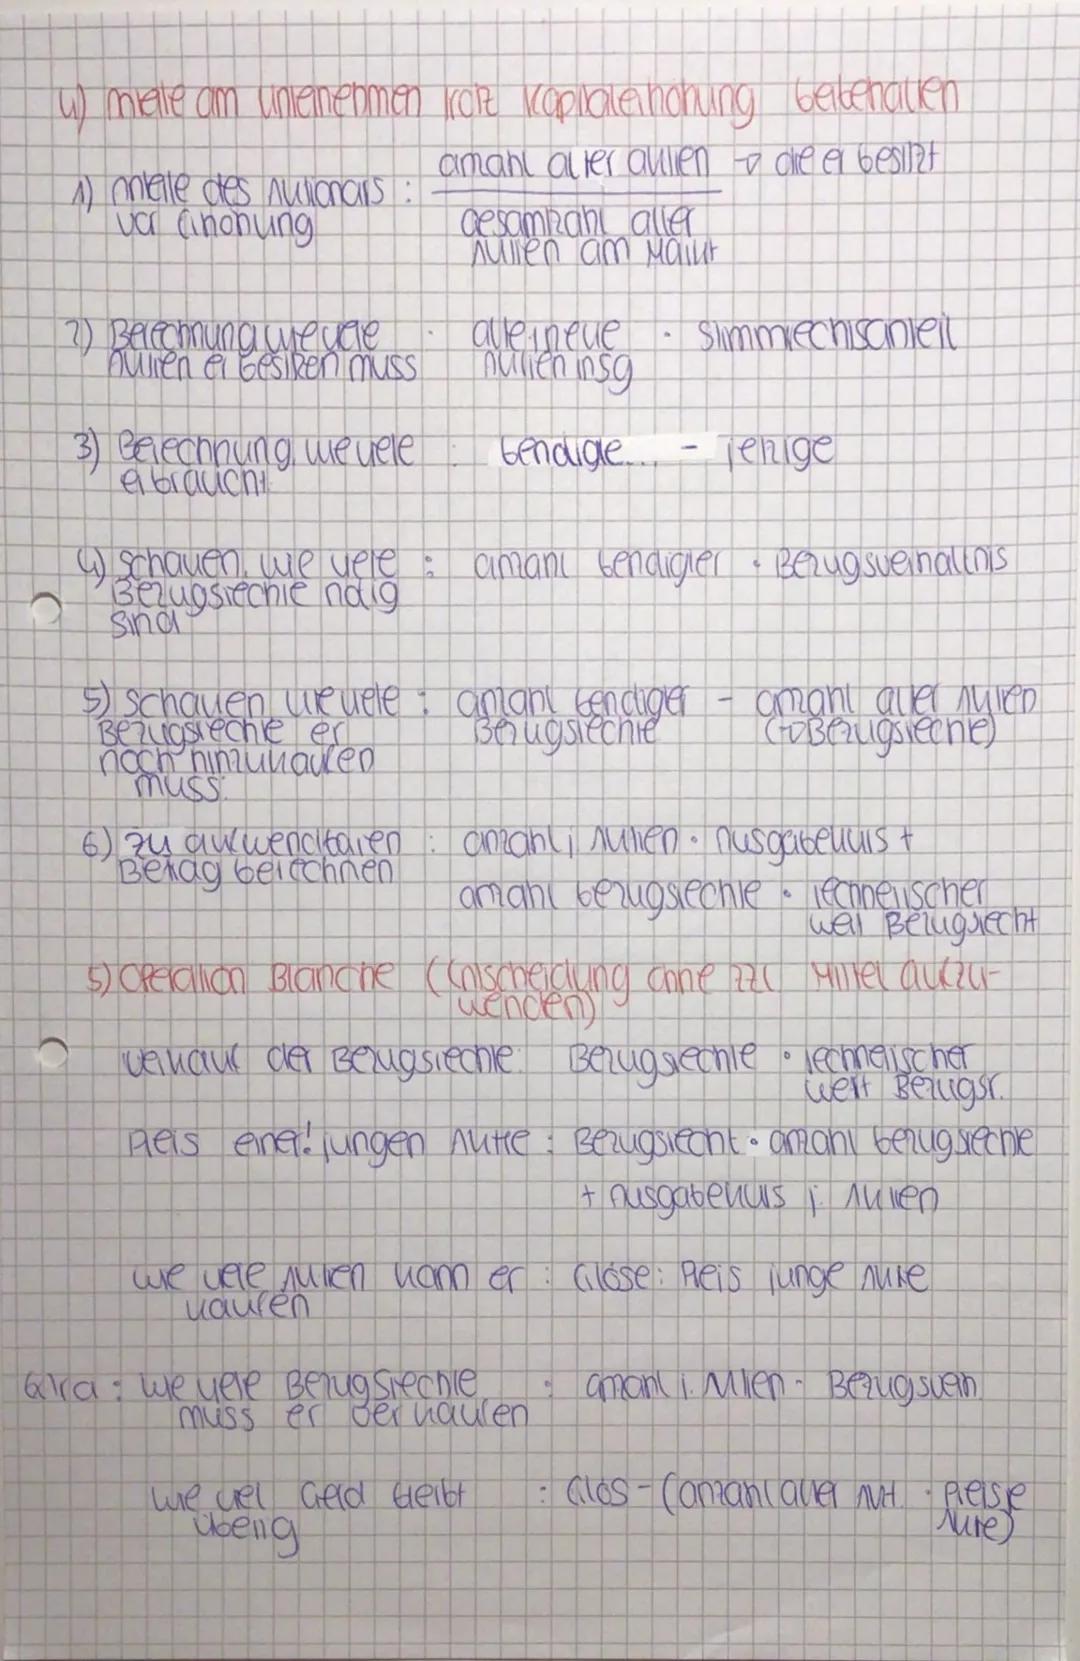 4) Anteile am Unternehmen trotz Kapitalerhöhung beibehalten
1) Anteile des Aktionärs : Anzahl alter Aktien → die er besitzt
vor Erhöhung
Gesamtzahl aller
Aktien am Markt
2) Berechnung wie viele : alle neue · Stimmrechtsanteil
Aktien er besitzen muss Aktien insg
3) Berechnung, wie viele : benötigte... - jetzige
er braucht
4) schauen, wie viele : Anzahl benötigter · Bezugsverhältnis
Bezugsrechte nötig
sind
5) schauen, wie viele : Anzahl benötigter - Anzahl alter Aktien
Bezugsrechte er Bezugsrechte (→ Bezugsrechte)
noch hinzukaufen
muss:
6) zu aufwendbaren : Anzahl j Aktien · Ausgabekurs +
Betrag berechnen
Anzahl Bezugsrechte · rechnerischer
Wert Bezugsrecht
5) Operation Blanche (Entscheidung ohne zzl Mittel aufzu-
wenden)
Verkauf der Bezugsrechte: Bezugsrechte · rechnerischer
Wert Bezugsr.
Preis einer! jungen Aktie : Bezugsrecht · Anzahl Bezugsrechte
+ Ausgabekurs j. Aktien
Wie viele Aktien kann er : Erlöse : Preis junge Aktie
kaufen
Extra : Wie viele Bezugsrechte : Anzahl j. Aktien · Bezugsverh.
muss er verkaufen
Wie viel Geld bleibt : Erlös - (Anzahl aller Akt. · Preis je
übrig Aktie)